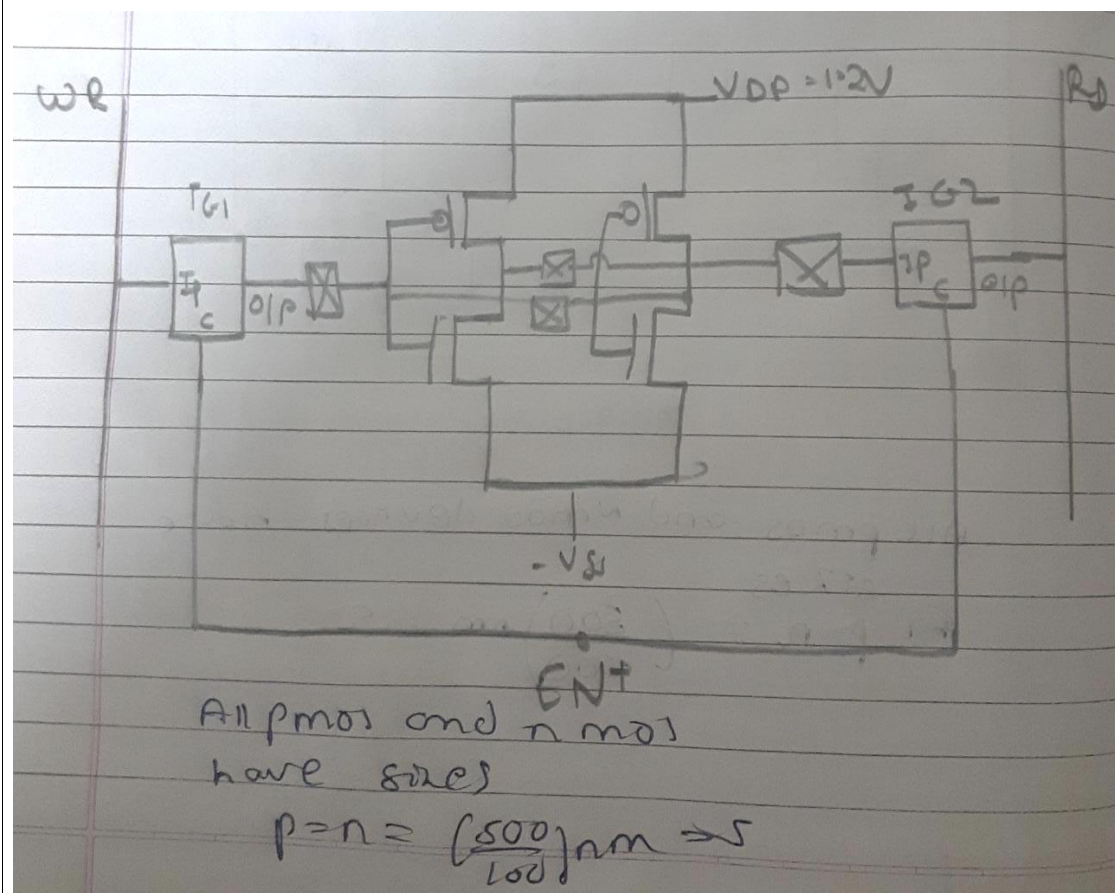 WR
VDD = 1.2V
RD
TG1
TG2
Ip
C
O/P
IP
C
O/P
- VSS
EN+
All pmos and n mos
have sizes
p = n = (500/100) nm => 5